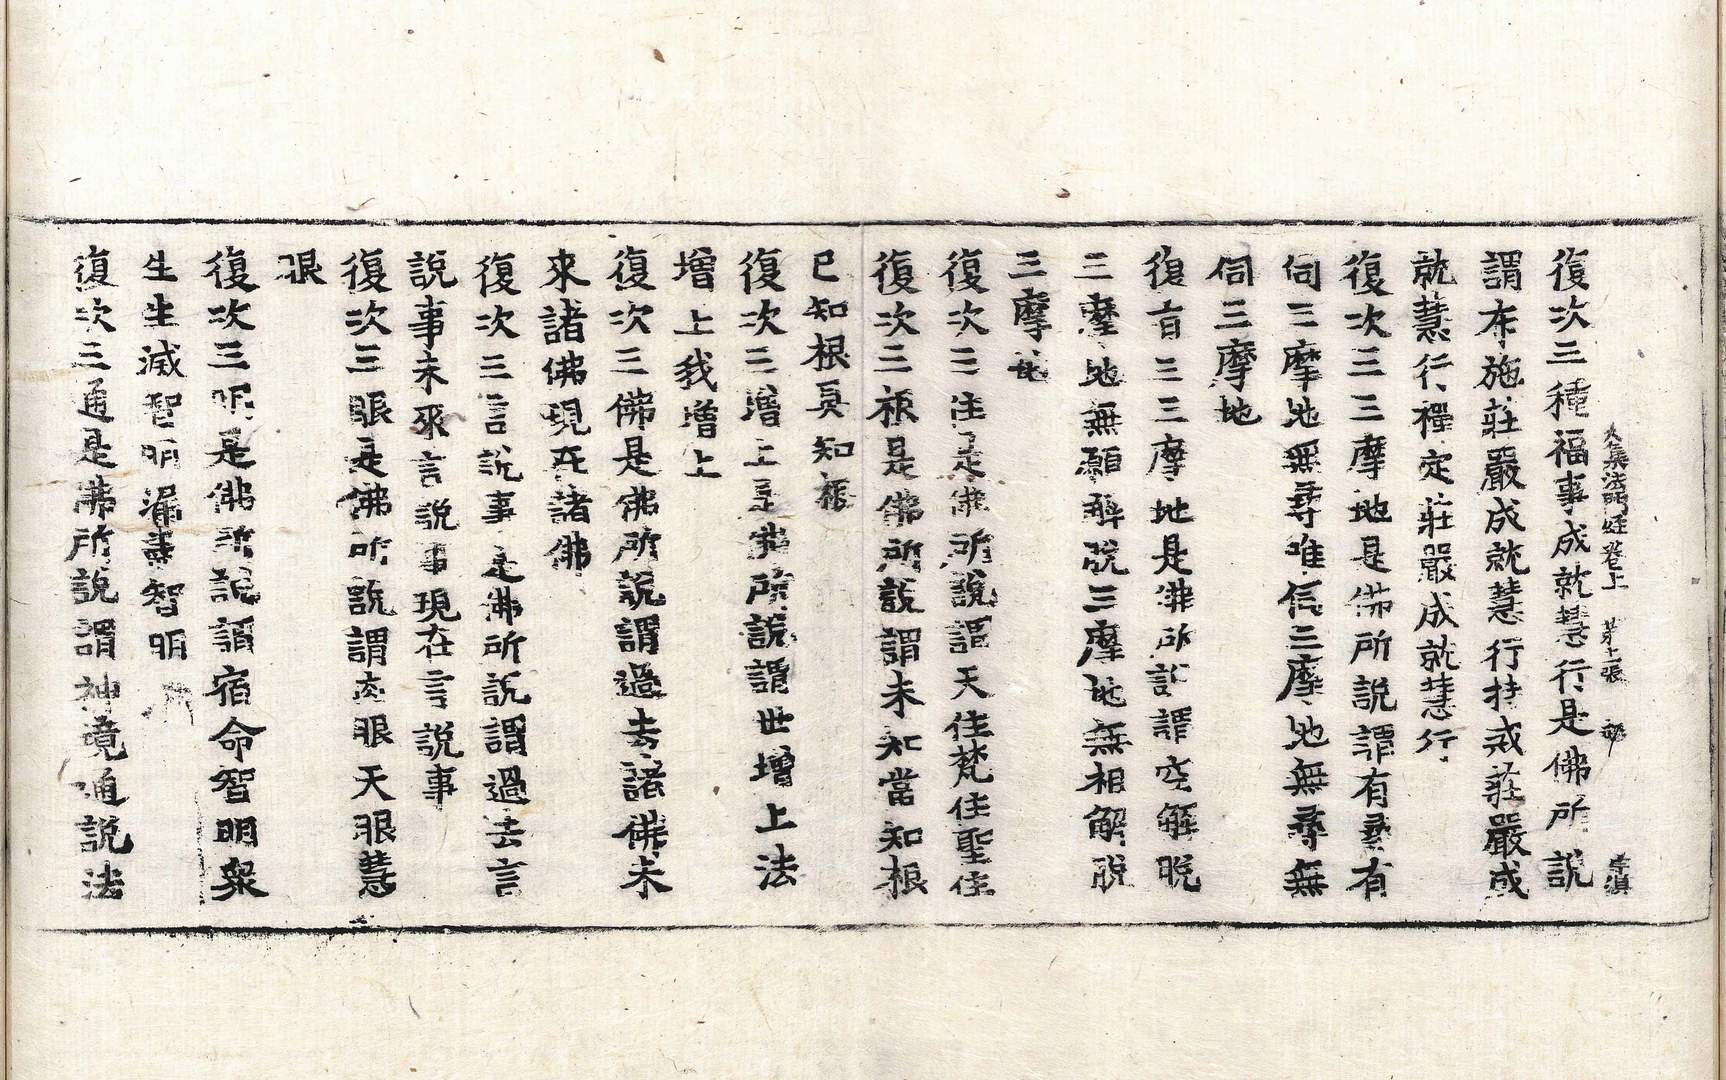 大集法門經卷上 第十張
復次三種福事成就慧行是佛所說
謂布施莊嚴成就慧行持戒莊嚴成
就慧行禪定莊嚴成就慧行
復次三三摩地是佛所說謂有尋有
伺三摩地無尋唯伺三摩地無尋無
伺三摩地
復有三三摩地是佛所說謂空解脫
三摩地無願解脫三摩地無相解脫
三摩地
復次三住是佛所說謂天住梵住聖住
復次三根是佛所說謂未知當知根
已知根具知根
復次三增上是佛所說謂世增上法
增上我增上
復次三佛是佛所說謂過去諸佛未
來諸佛現在諸佛
復次三言說事是佛所說謂過去言
說事未來言說事現在言說事
復次三眼是佛所說謂肉眼天眼慧
眼
復次三明是佛所說謂宿命智明衆
生生滅智明漏盡智明
復次三通是佛所說謂神境通說法